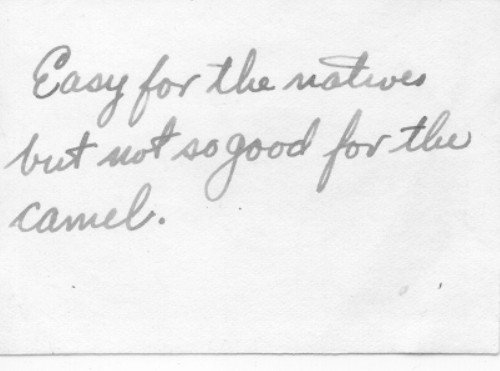 Easy for the natives
but not so good for the
camel.